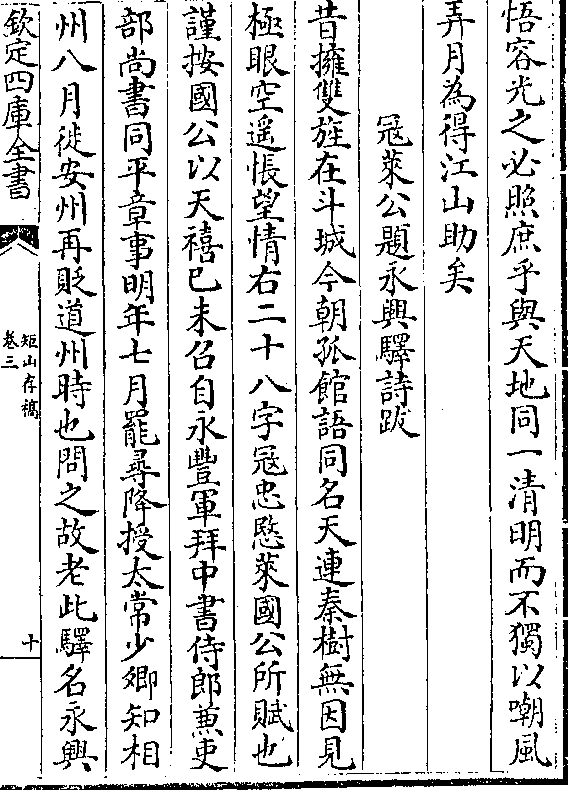 悟容光之必照庶乎與天地同一清明而不獨以嘲風
弄月為得江山助矣
寇萊公題永興驛詩跋
昔擁雙旌在斗城今朝孤館語同名天連秦樹無因見
極眼空遥悵望情右二十八字寇忠愍萊國公所賦也
謹按國公以天禧已未召自永豐軍拜中書侍郎兼吏
部尚書同平章事明年七月罷尋降授太常少卿知相
州八月徙安州再貶道州時也問之故老此驛名永興
欽定四庫全書
矩山存稿
卷三
十